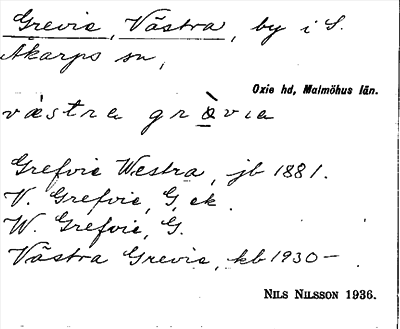 Grevie, Västra, by i S.
Åkarps sn,
Oxie hd, Malmöhus län.
västra gràvia
Grefvie Westra, jb 1881.
V. Grefvie, G. ek.
W. Grefvie, G.
Västra Grevie, kb 1930–
NILS NILSSON 1936.